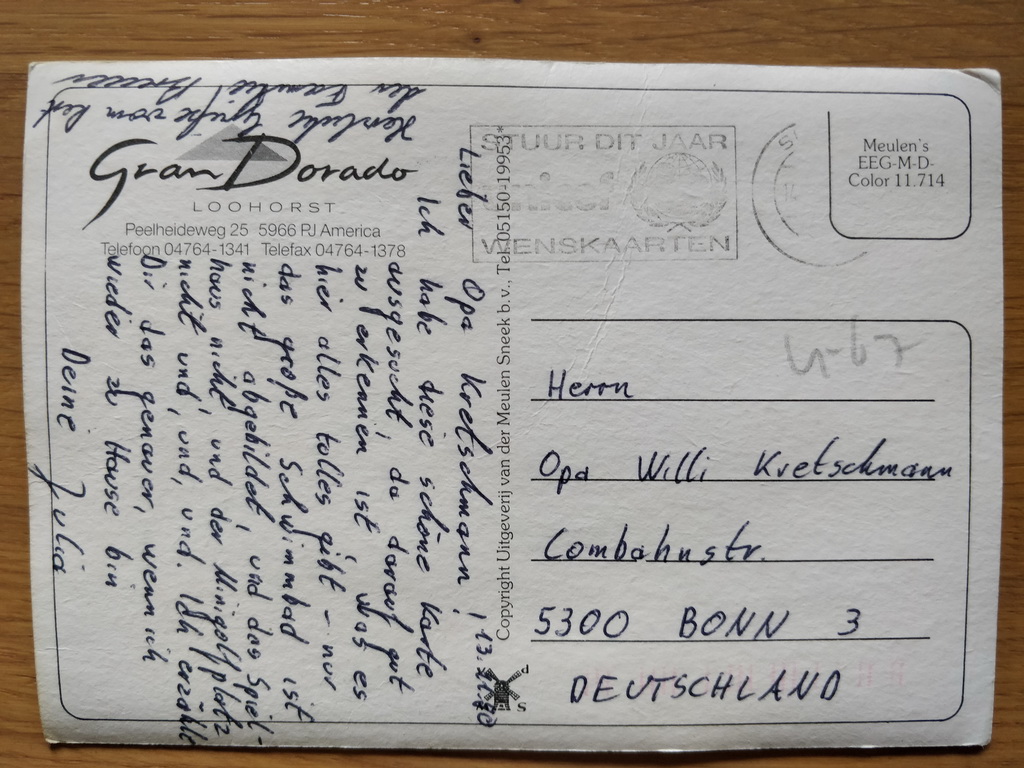 Herzliche Grüße vom Rest
der Familie
Gran Dorado
LOOHORST
Peelheideweg 25 5966 PJ America
Telefoon 04764-1341 Telefax 04764-1378
13.
Lieber Opa Kretschmann!
Ich habe diese schöne Karte
ausgesucht, da darauf gut
zu erkennen ist, was es
hier alles tolles gibt - nur
das große Schwimmbad ist
nicht abgebildet, und das Spiel-
haus nicht, und der Minigolfplatz
nicht und, und, und. Ich erzähle
Dir das genauer, wenn ich
wieder zu Hause bin
Deine Julia
Copyright Uitgeverij van der Meulen Sneek b.v., Tel. 05150-19953*
d
S
STUUR DIT JAAR
unicef
WENSKAARTEN
Meulen's
EEG-M-D-
Color 11.714
4-67
Herrn
Opa Willi Kretschmann
Combahnstr.
5300 BONN 3
DEUTSCHLAND